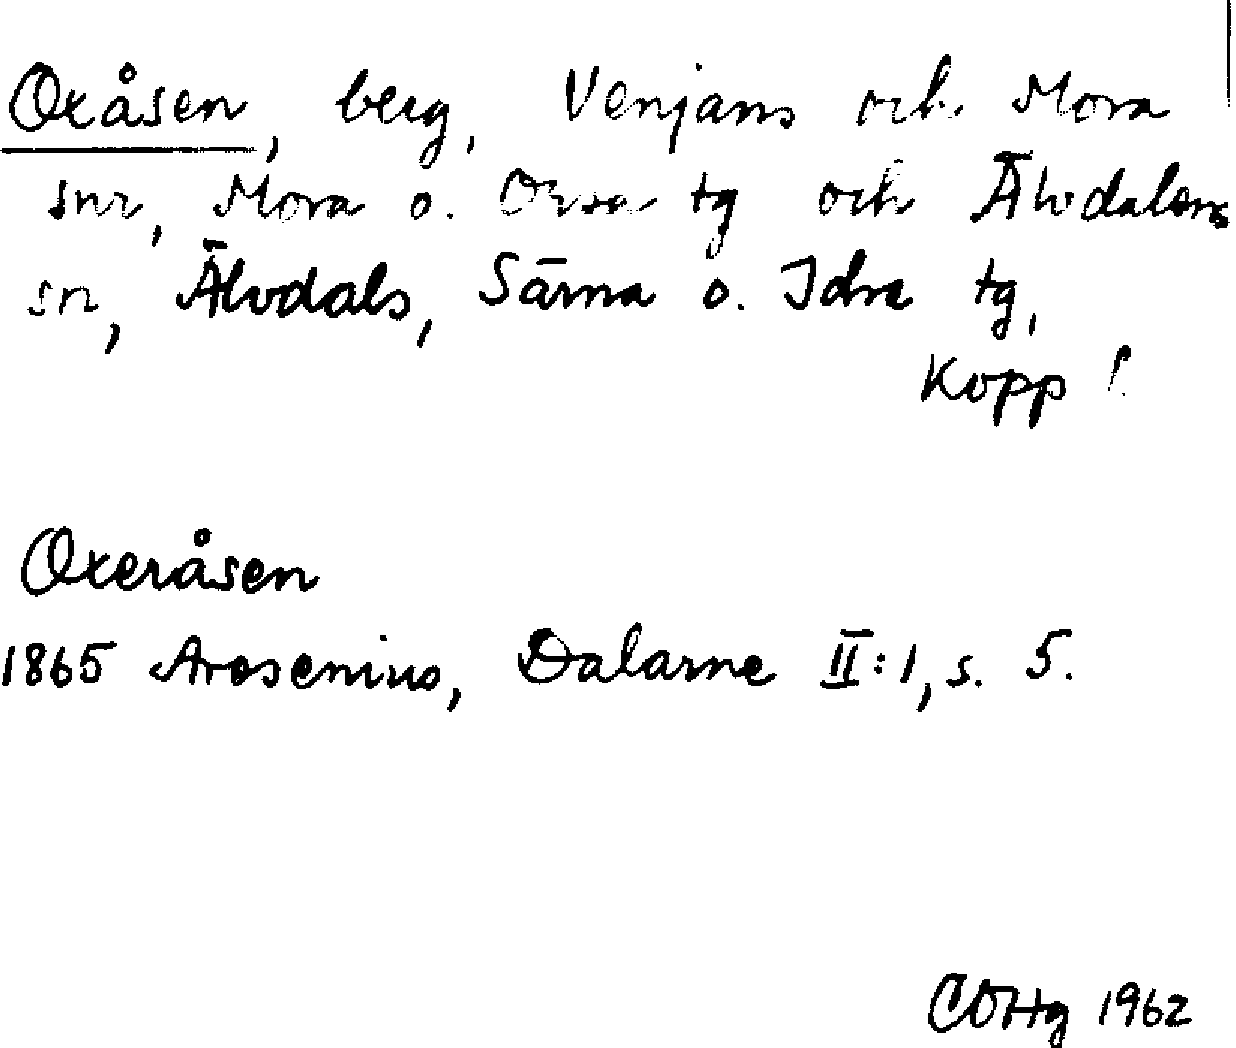 Oxåsen, berg, Venjans och Mora
snr, Mora o. Orsa tg och Älvdalens
sn, Älvdals, Särna o. Idre tg,
Kopp l.
Oxeråsen
1865 Arosenius, Dalarne II:1, s. 5.
COHg 1962